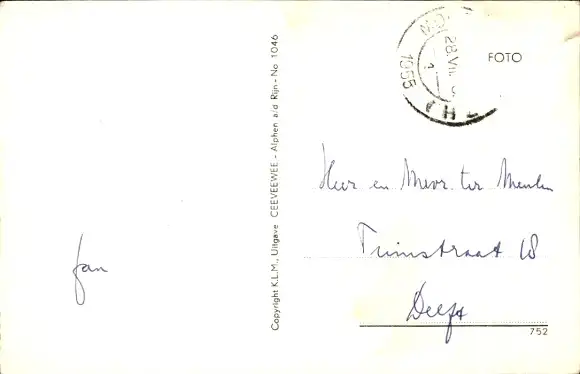 Jan
Copyright K.L.M., Uitgave CEEVEEWEE - Alphen a/d Rijn - No 1046
28.VIII
1955
FOTO
Heer en Mevr. ter Meulen
18
Delft
752